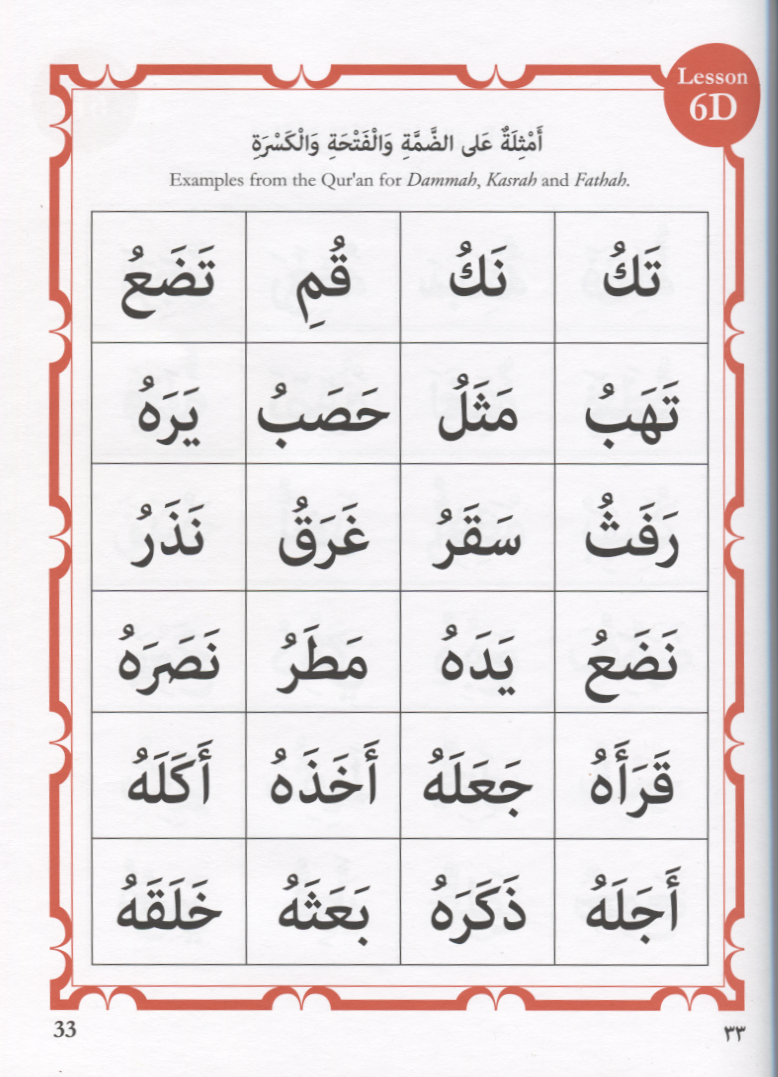 Lesson
6D
أَمْثِلَةٌ عَلى الضَّمَّةِ وَالْفَتْحَةِ وَالْكَسْرَةِ
Examples from the Qur'an for Dammah, Kasrah and Fathah.
تَكُ نَكُ قُمِ تَضَعُ
تَهَبُ مَثَلُ حَصَبُ يَرَهُ
رَفَثُ سَقَرُ غَرَقُ نَذَرُ
نَضَعُ يَدَهُ مَطَرُ نَصَرَهُ
قَرَأَهُ جَعَلَهُ أَخَذَهُ أَكَلَهُ
أَجَلَهُ ذَكَرَهُ بَعَثَهُ خَلَقَهُ
33 ٣٣